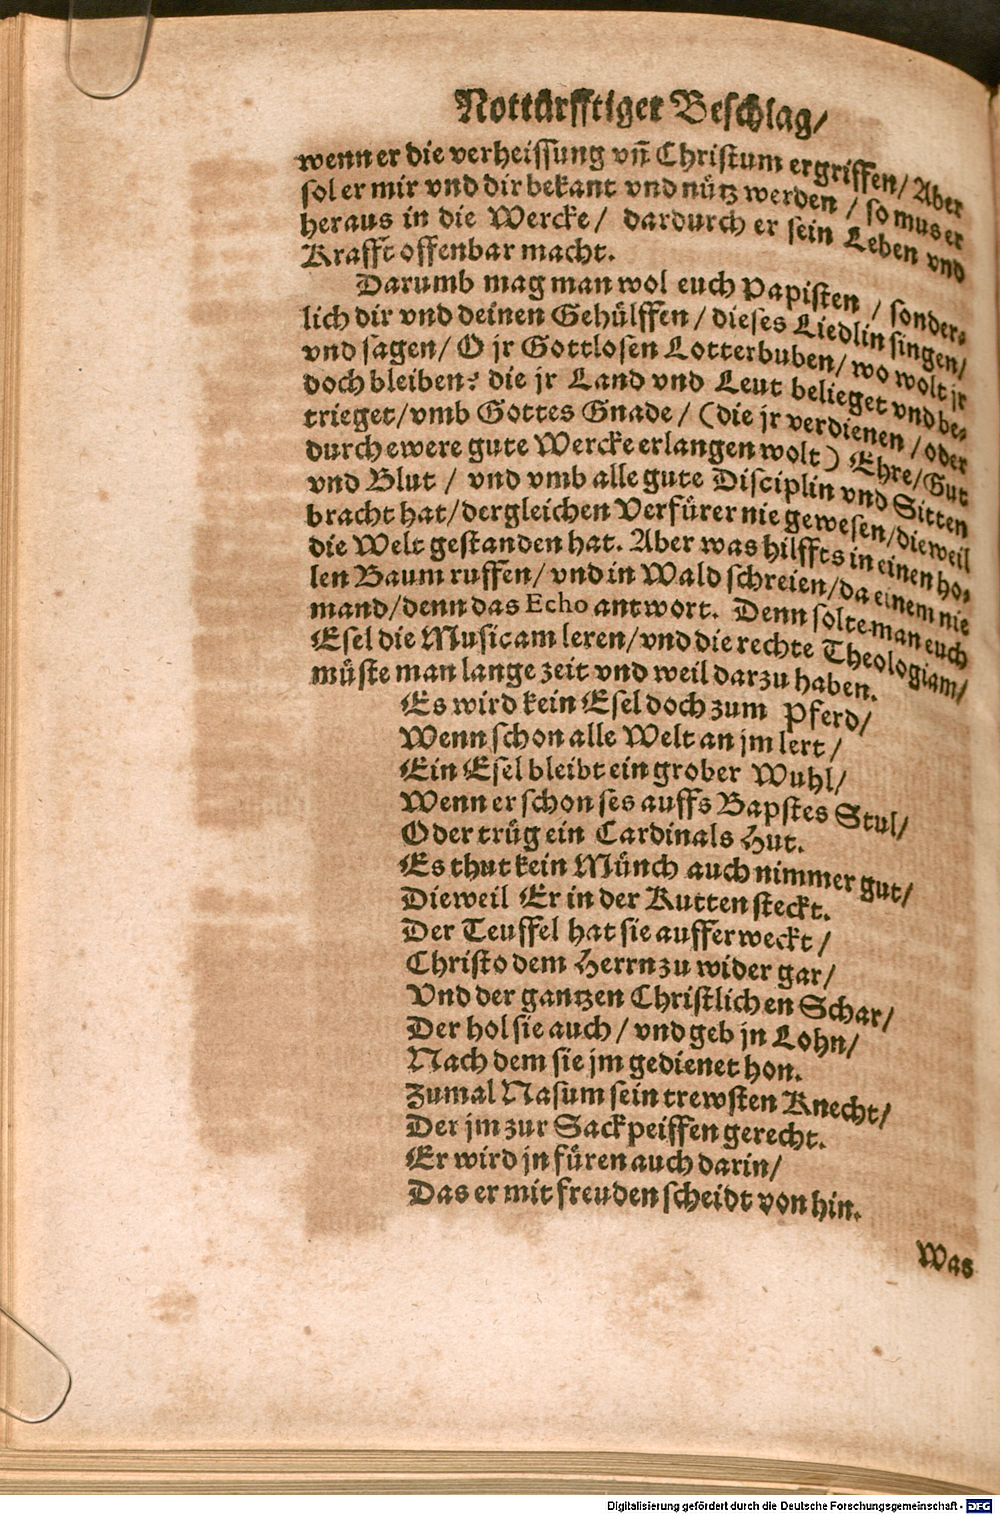 Nottürfftiger Beschlag/
wenn er die verheissung vñ Christum ergriffen/ Aber
sol er mir vnd dir bekant vnd nütz werden / so mus er
heraus in die Wercke/ dardurch er sein Leben vnd
Krafft offenbar macht.
Darumb mag man wol euch Papisten / sonder-
lich dir vnd deinen Gehülffen/ dieses Liedlin singen/
vnd sagen/ O jr Gottlosen Lotterbuben/ wo wolt jr
doch bleiben? die jr Land vnd Leut belieget vnd be-
trieget/ vmb Gottes Gnade/ (die jr verdienen / oder
durch ewere gute Wercke erlangen wolt) Ehre/ Gut
vnd Blut / vnd vmb alle gute Disciplin vnd Sitten
bracht hat/ dergleichen Verfürer nie gewesen/ dieweil
die Welt gestanden hat. Aber was hilffts in einen ho-
len Baum ruffen/ vnd in Wald schreien/ da einem nie
mand/ denn das Echo antwort. Denn solte man euch
Esel die Musicam leren/ vnd die rechte Theologiam/
müste man lange zeit vnd weil darzu haben.
Es wird kein Esel doch zum Pferd/
Wenn schon alle Welt an jm lert /
Ein Esel bleibt ein grober Wuhl/
Wenn er schon ses auffs Bapstes Stul/
Oder trüg ein Cardinals Hut.
Es thut kein Münch auch nimmer gut/
Dieweil Er in der Kutten steckt.
Der Teuffel hat sie aufferweckt /
Christo dem Herrn zu wider gar/
Vnd der gantzen Christlichen Schar/
Der hol sie auch / vnd geb jn Lohn/
Nach dem sie jm gedienet hon.
Zumal Nasum sein trewsten Knecht/
Der jm zur Sackpeiffen gerecht.
Er wird jn füren auch darin/
Das er mit freuden scheidt von hin.
Was
Digitalisierung gefördert durch die Deutsche Forschungsgemeinschaft - DFG